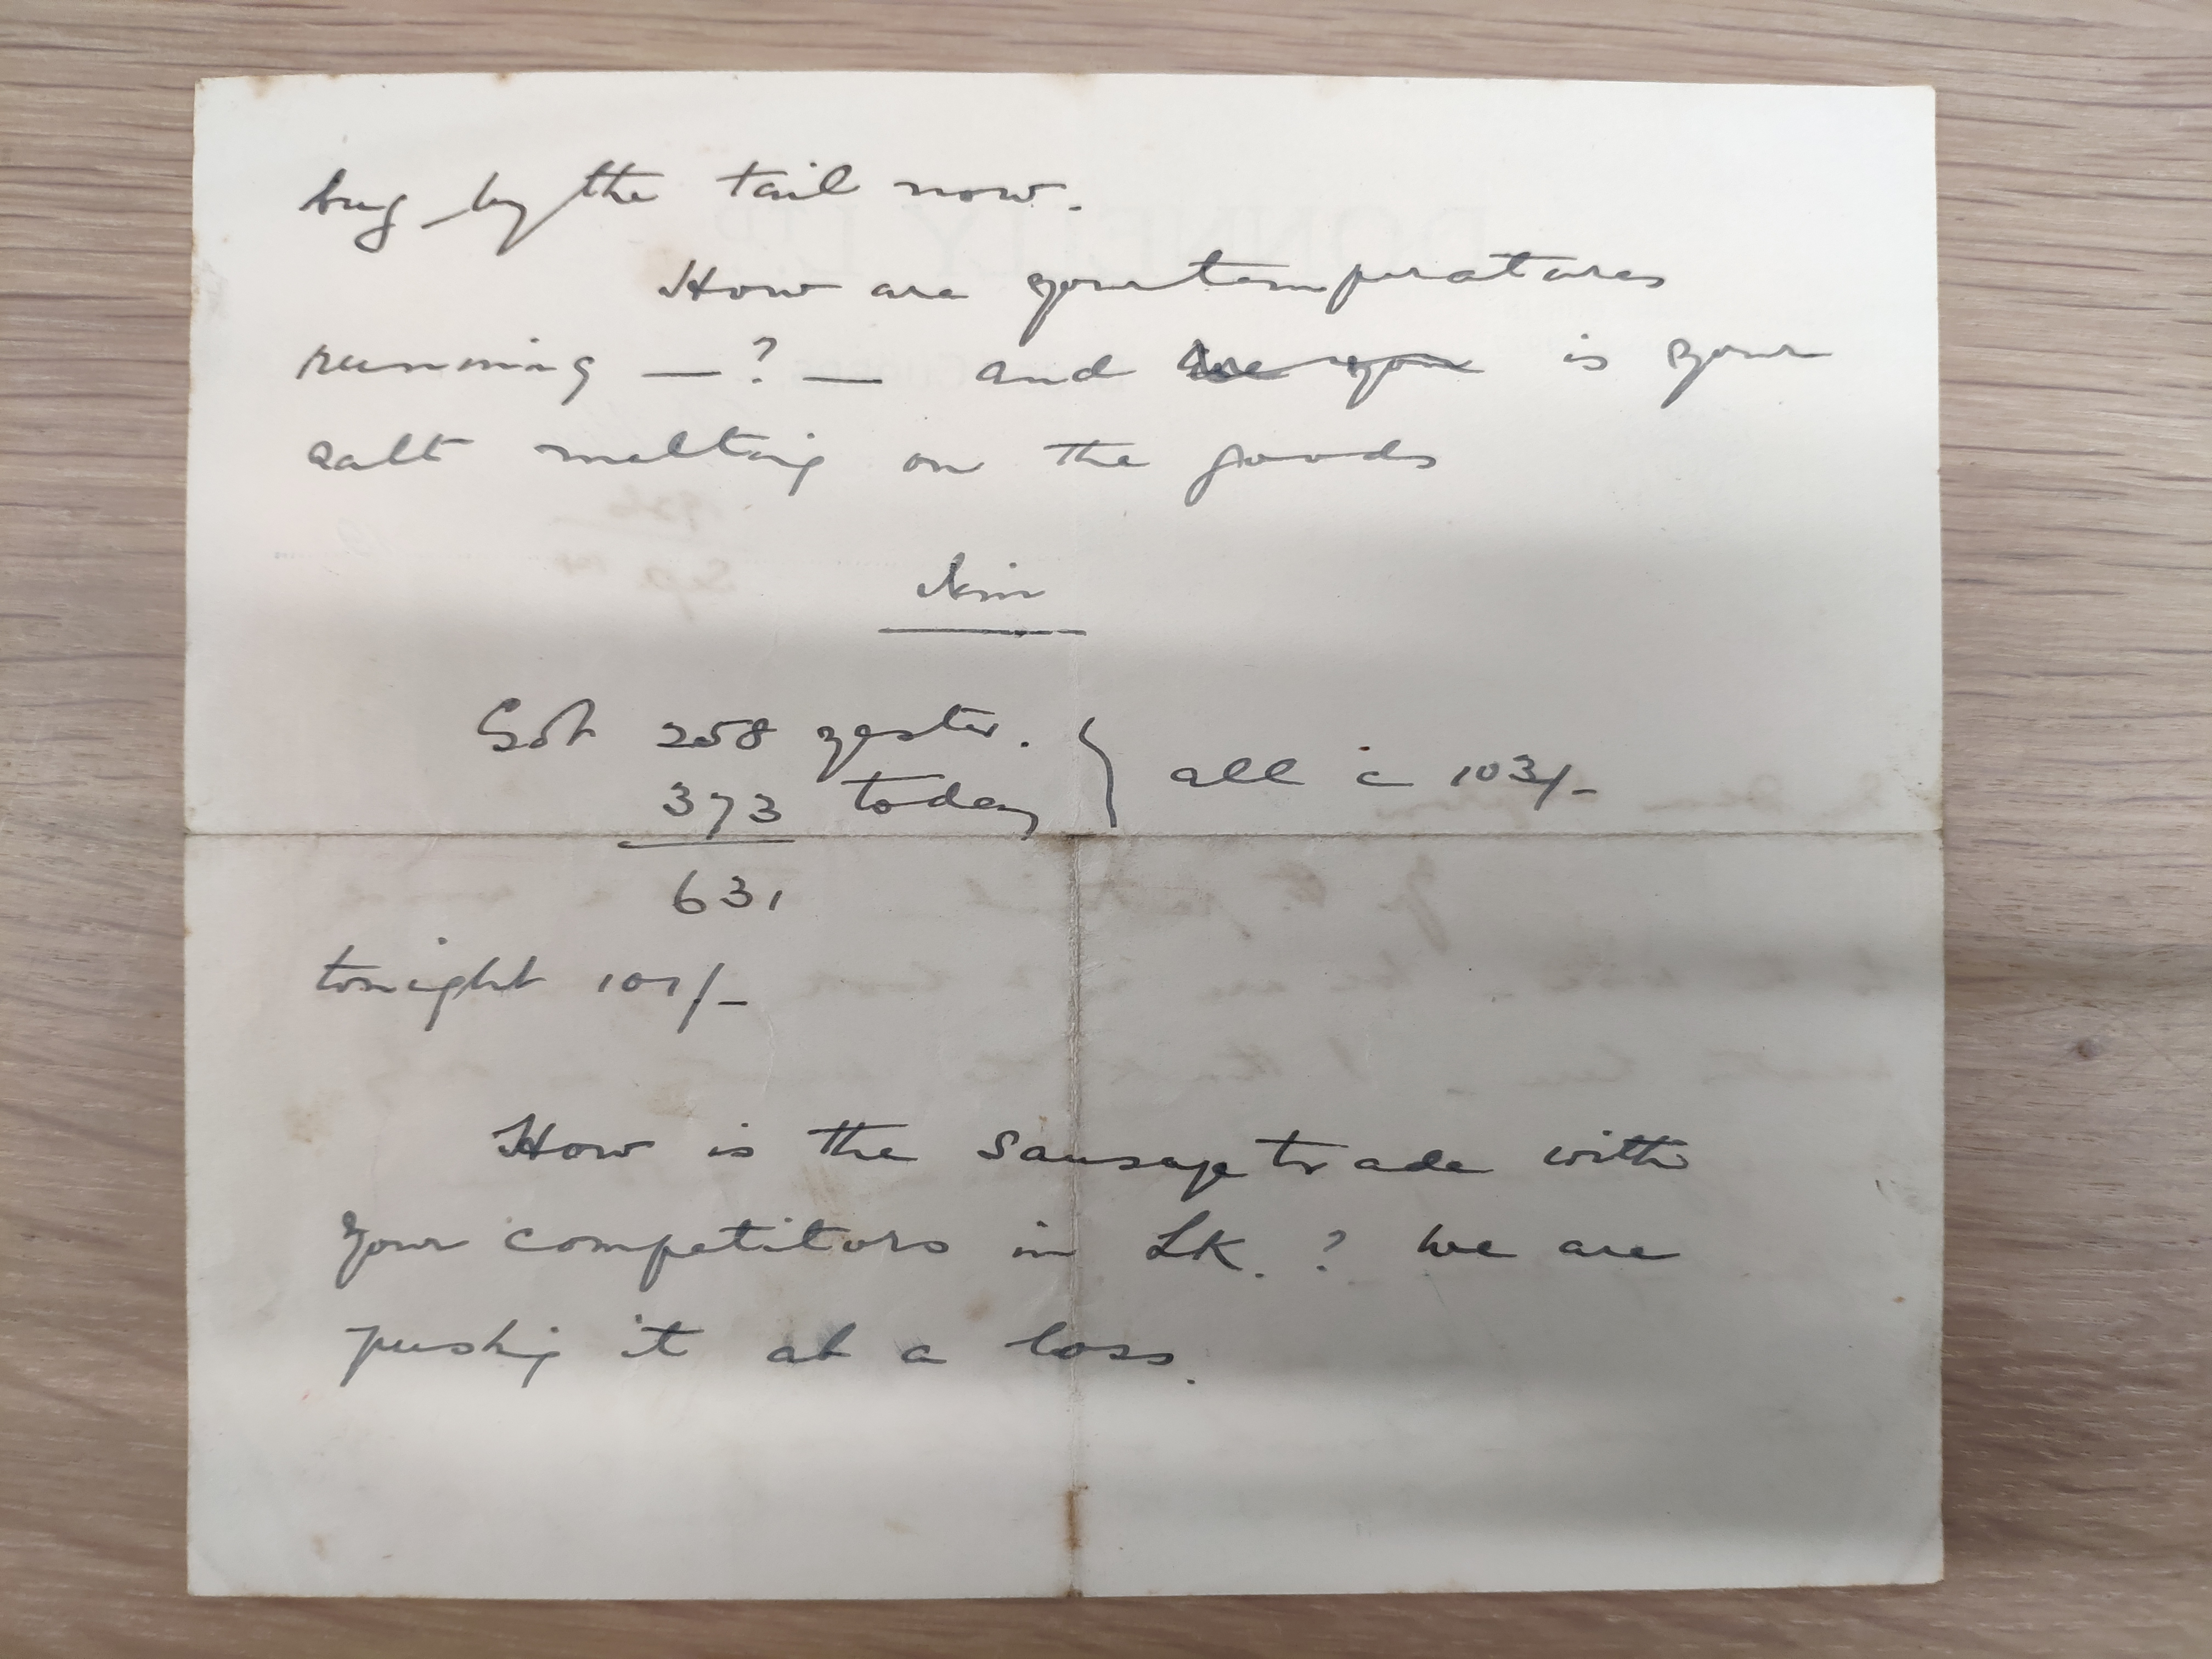 bug by the tail now.
How are your temperatures
running — ? — and are you is your
salt melting on the goods
Jim
Got 258 yester. } all c 103/-
373 today
631
tonight 101/-
How is the Sausage trade with
your competitors in LK. ? We are
pushing it at a loss.